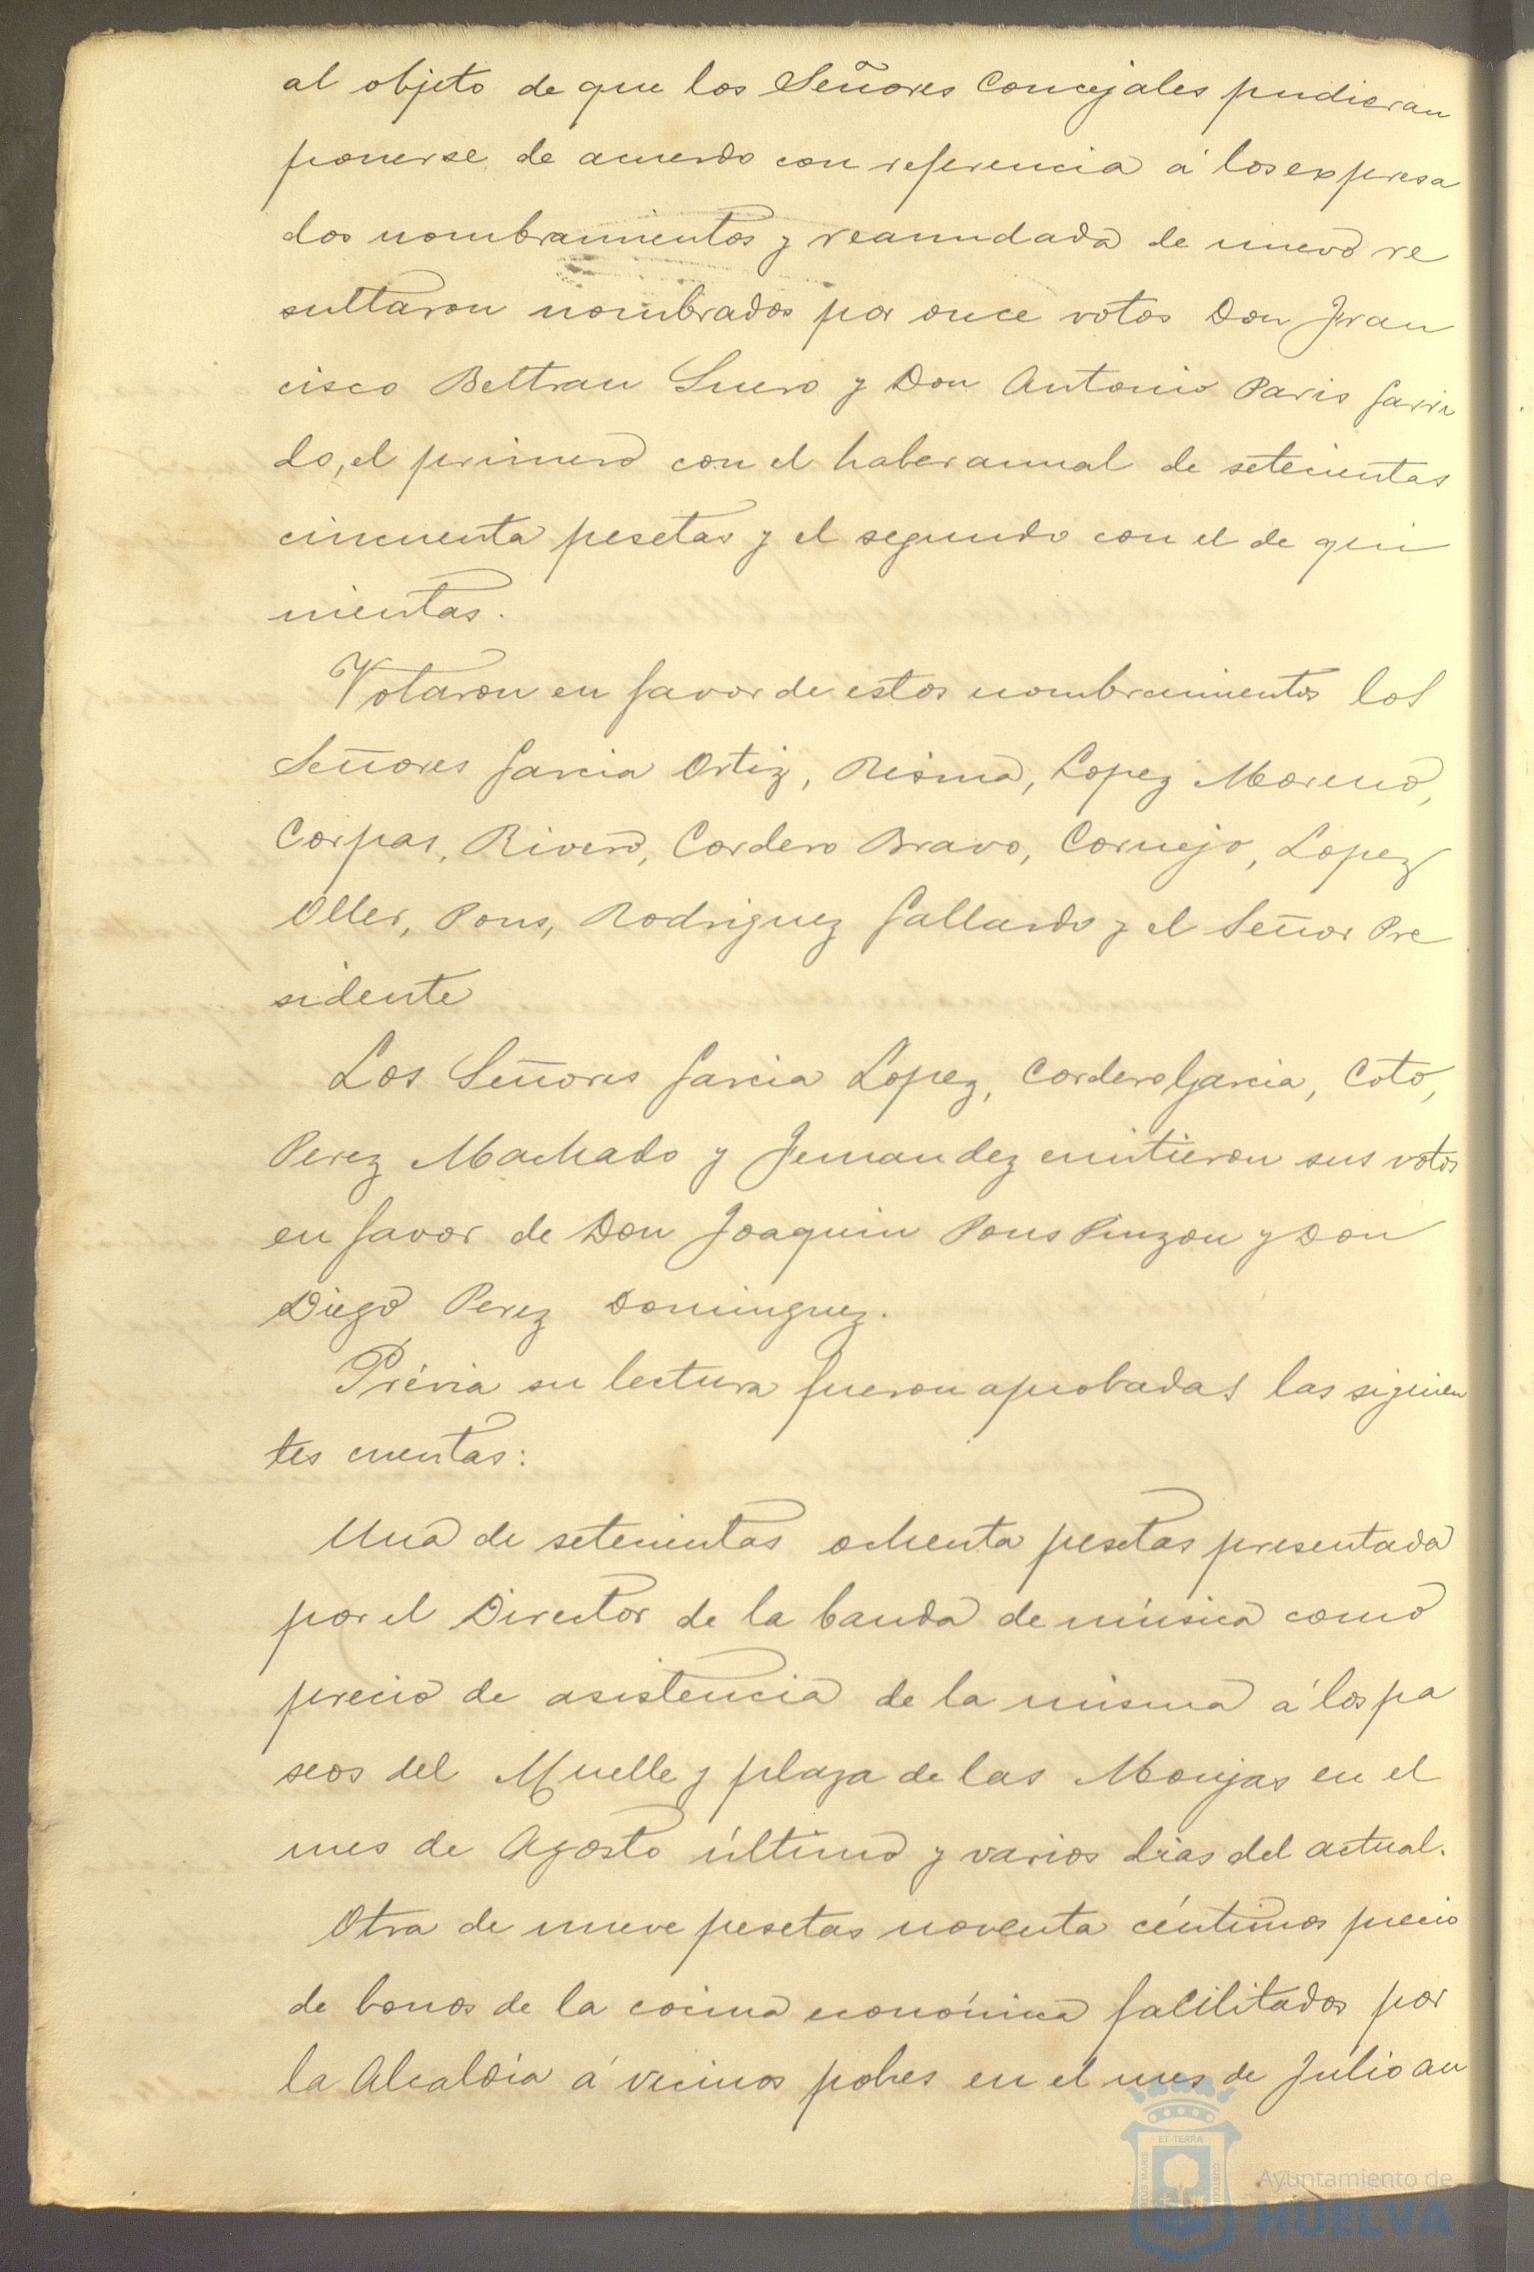 al objeto de que los Señores Concejales pudieran
ponerse de acuerdo con referencia á los expresa
dos nombramientos y reanudada de nuevo re
sultaron nombrados por once votos Don Fran
cisco Beltran Suero y Don Antonio Paris Garri
do, el primero con el haber anual de setecientas
cincuenta pesetas y el segundo con el de qui
nientas.
Votaron en favor de estos nombramientos los
Señores Garcia Ortiz, Risma, Lopez Moreno,
Corpas, Rivero, Cordero Bravo, Cornejo, Lopez
Oller, Pons, Rodriguez Gallardo y el Señor Pre
sidente
Los Señores Garcia Lopez, Cordero Garcia, Coto,
Perez Machado y Fernandez emitieron sus votos
en favor de Don Joaquin Pons Pinzon y Don
Diego Perez Dominguez.
Prévia su lectura fueron aprobadas las siguien
tes cuentas:
Una de setecientas ochenta pesetas presentada
por el Director de la banda de música como
precio de asistencia de la misma á los pa
seos del Muelle y plaza de las Monjas en el
mes de Agosto último y varios dias del actual.
Otra de nueve pesetas noventa céntimos precio
de bonos de la cocina económica facilitados por
la Alcaldía á vecinos pobres en el mes de Julio an
ET TERRÆ
Ayuntamiento de
HUELVA